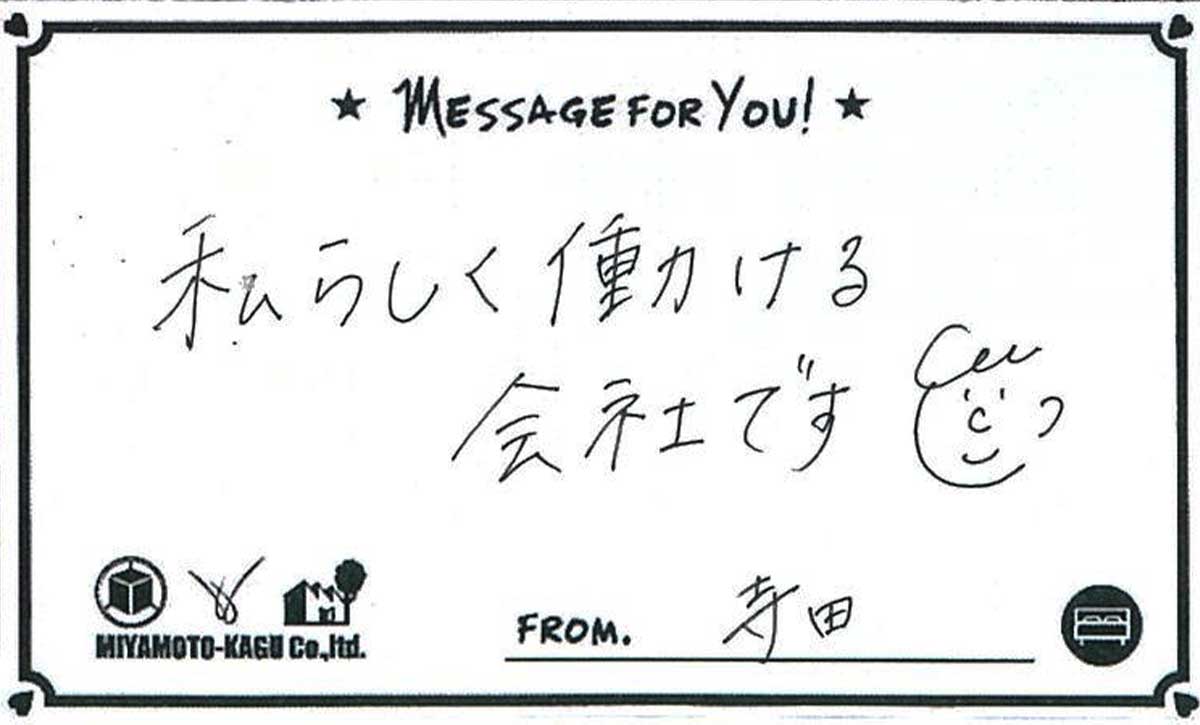 ★ MESSAGE FOR YOU! ★
私らしく働ける
会社です
MIYAMOTO-KAGU Co.,ltd.
FROM.寺田